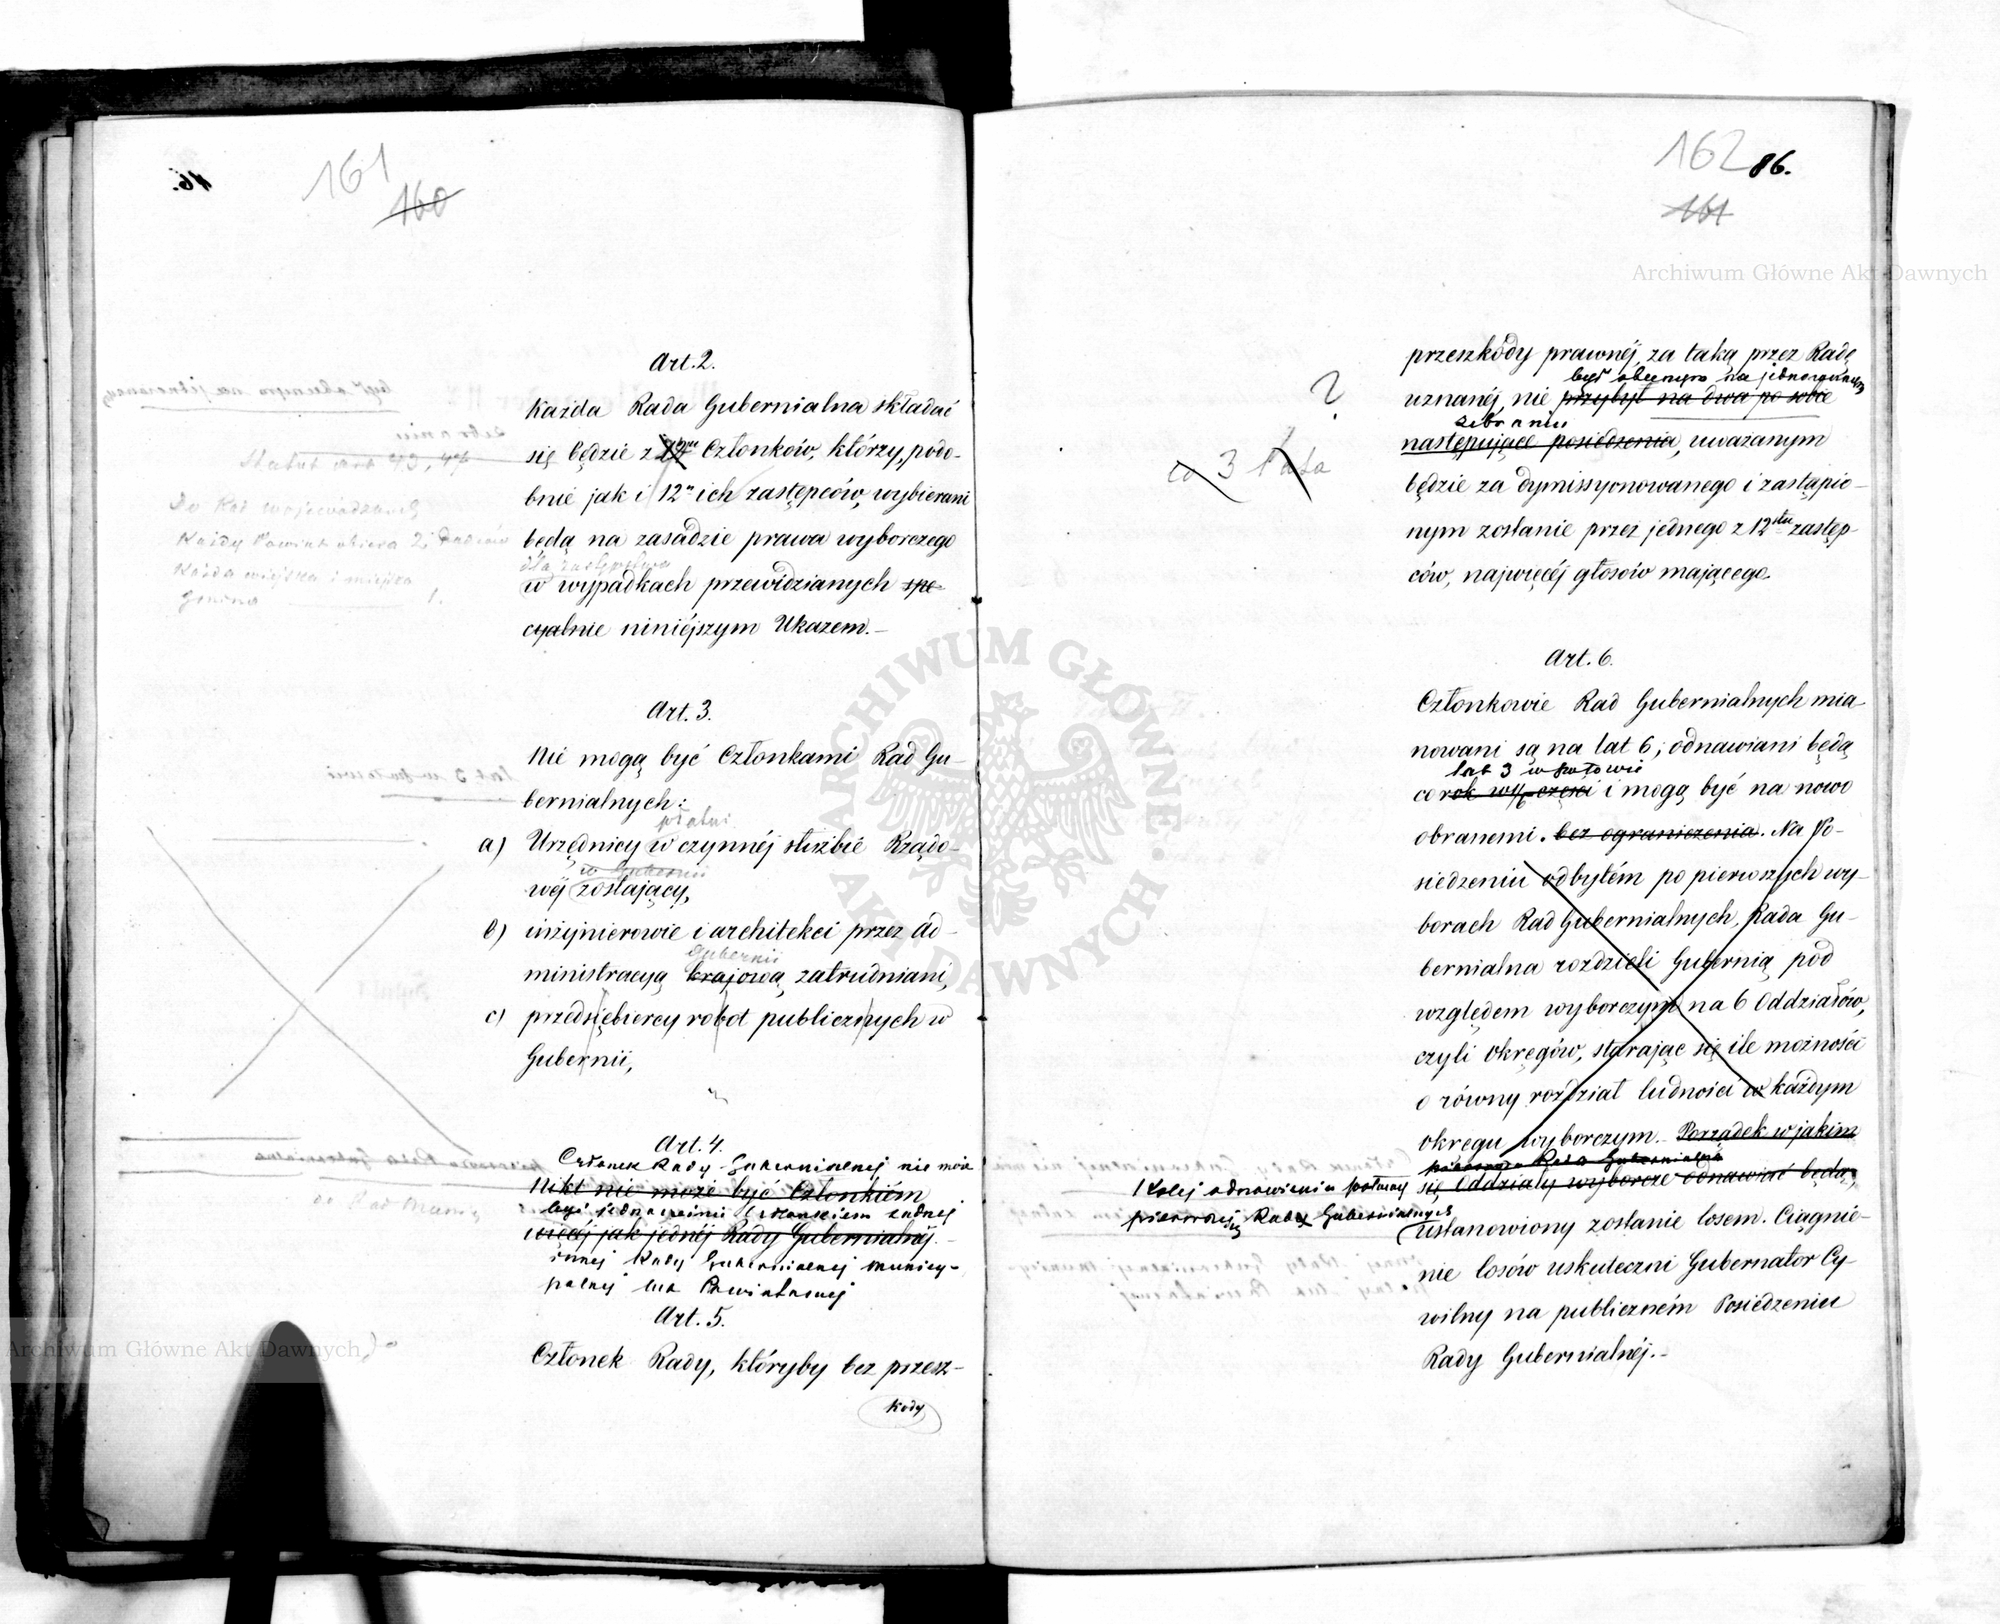 161
160
Art. 2.
Każda Rada Gubernialna składać
się będzie z 12tu Członków, którzy, podo-
bnie jak i 12u ich zastępców, wybierani
będą na zasadzie prawa wyborczego
dla zastępstwa
w wypadkach przewidzianych spe-
cyalnie niniéjszym Ukazem.–
Statut art 43, 47
Do Rad wojewódzkich
Każdy Powiat obiera 2
Każda wiejska i miejska
gmina 1.
Art. 3.
Nie mogą być Członkami Rad Gu-
bernialnych:
płatni
a) Urzędnicy w czynnéj służbie Rządo-
w Gubernii
wéj zostający,
b) inżynierowie i architekci przez Ad-
Gubernii
ministracyą krajową, zatrudniani,
c) przedsiębiercy robot publicznych w
Gubernii,
Art. 4.
Członek Rady Gubernialnej nie może
Nikt nie może być Członkiém
być jednocześnie Członkiem żadnej
więcéj jak jednéj Rady Gubernialnéj.–
innej Rady Gubernialnej Municy-
palnej lub Powiatowej
do Rad Municy
Art. 5.
Członek Rady, któryby bez przesz-
kody
162 86.
161
Archiwum Główne Akt Dawnych
przeszkody prawnéj, za taką przez Radę
być obecnym na jednorocznym
uznanéj, nie przybył na dwa po sobie
zebraniu
następujące posiedzenia, uważanym
będzie za dymissyonowanego i zastąpio-
nym zostanie przez jednego z 12stu zastęp-
ców, najwięcéj głosów mającego.
?
co 3 lata
Art. 6.
Członkowie Rad Gubernialnych mia-
nowani są na lat 6; odnawiani będą
lat 3 w połowie
co rok w 1/6 części i mogą być na nowo
obranemi. bez ograniczenia. Na Po-
siedzeniu odbytém po pierwszych wy-
borach Rad Gubernialnych, Rada Gu-
bernialna rozdzieli Gubernią pod
względem wyborczym na 6 Oddziałów,
czyli okręgów, starając się ile możności
o równy rozdział ludności w każdym
okręgu wyborczym. Porządek w jakim
pierwsza Rada Gubernialna
się Oddziały wyborcze odnawiać będą,
Kolej odnowienia połowy
pierwszej Rady Gubernialnych
ustanowiony zostanie losem. Ciągnie-
nie losów uskuteczni Gubernator Cy-
wilny na publiczném Posiedzeniu
Rady Gubernialnéj.–
ARCHIWUM GŁÓWNE AKT DAWNYCH
Archiwum Główne Akt Dawnych